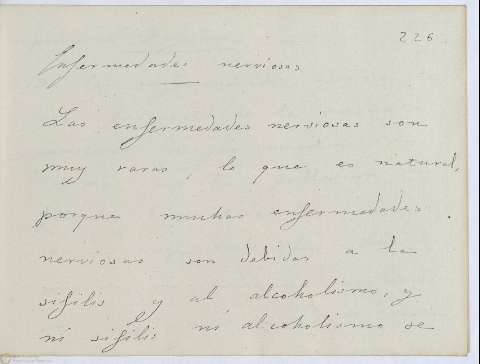 226
Enfermedades nerviosas
Las enfermedades nerviosas son
muy raras, lo que es natural,
porque muchas enfermedades
nerviosas son debidas a la
sifilis y al alcoholismo, y
ni sifilis ni alcoholismo se